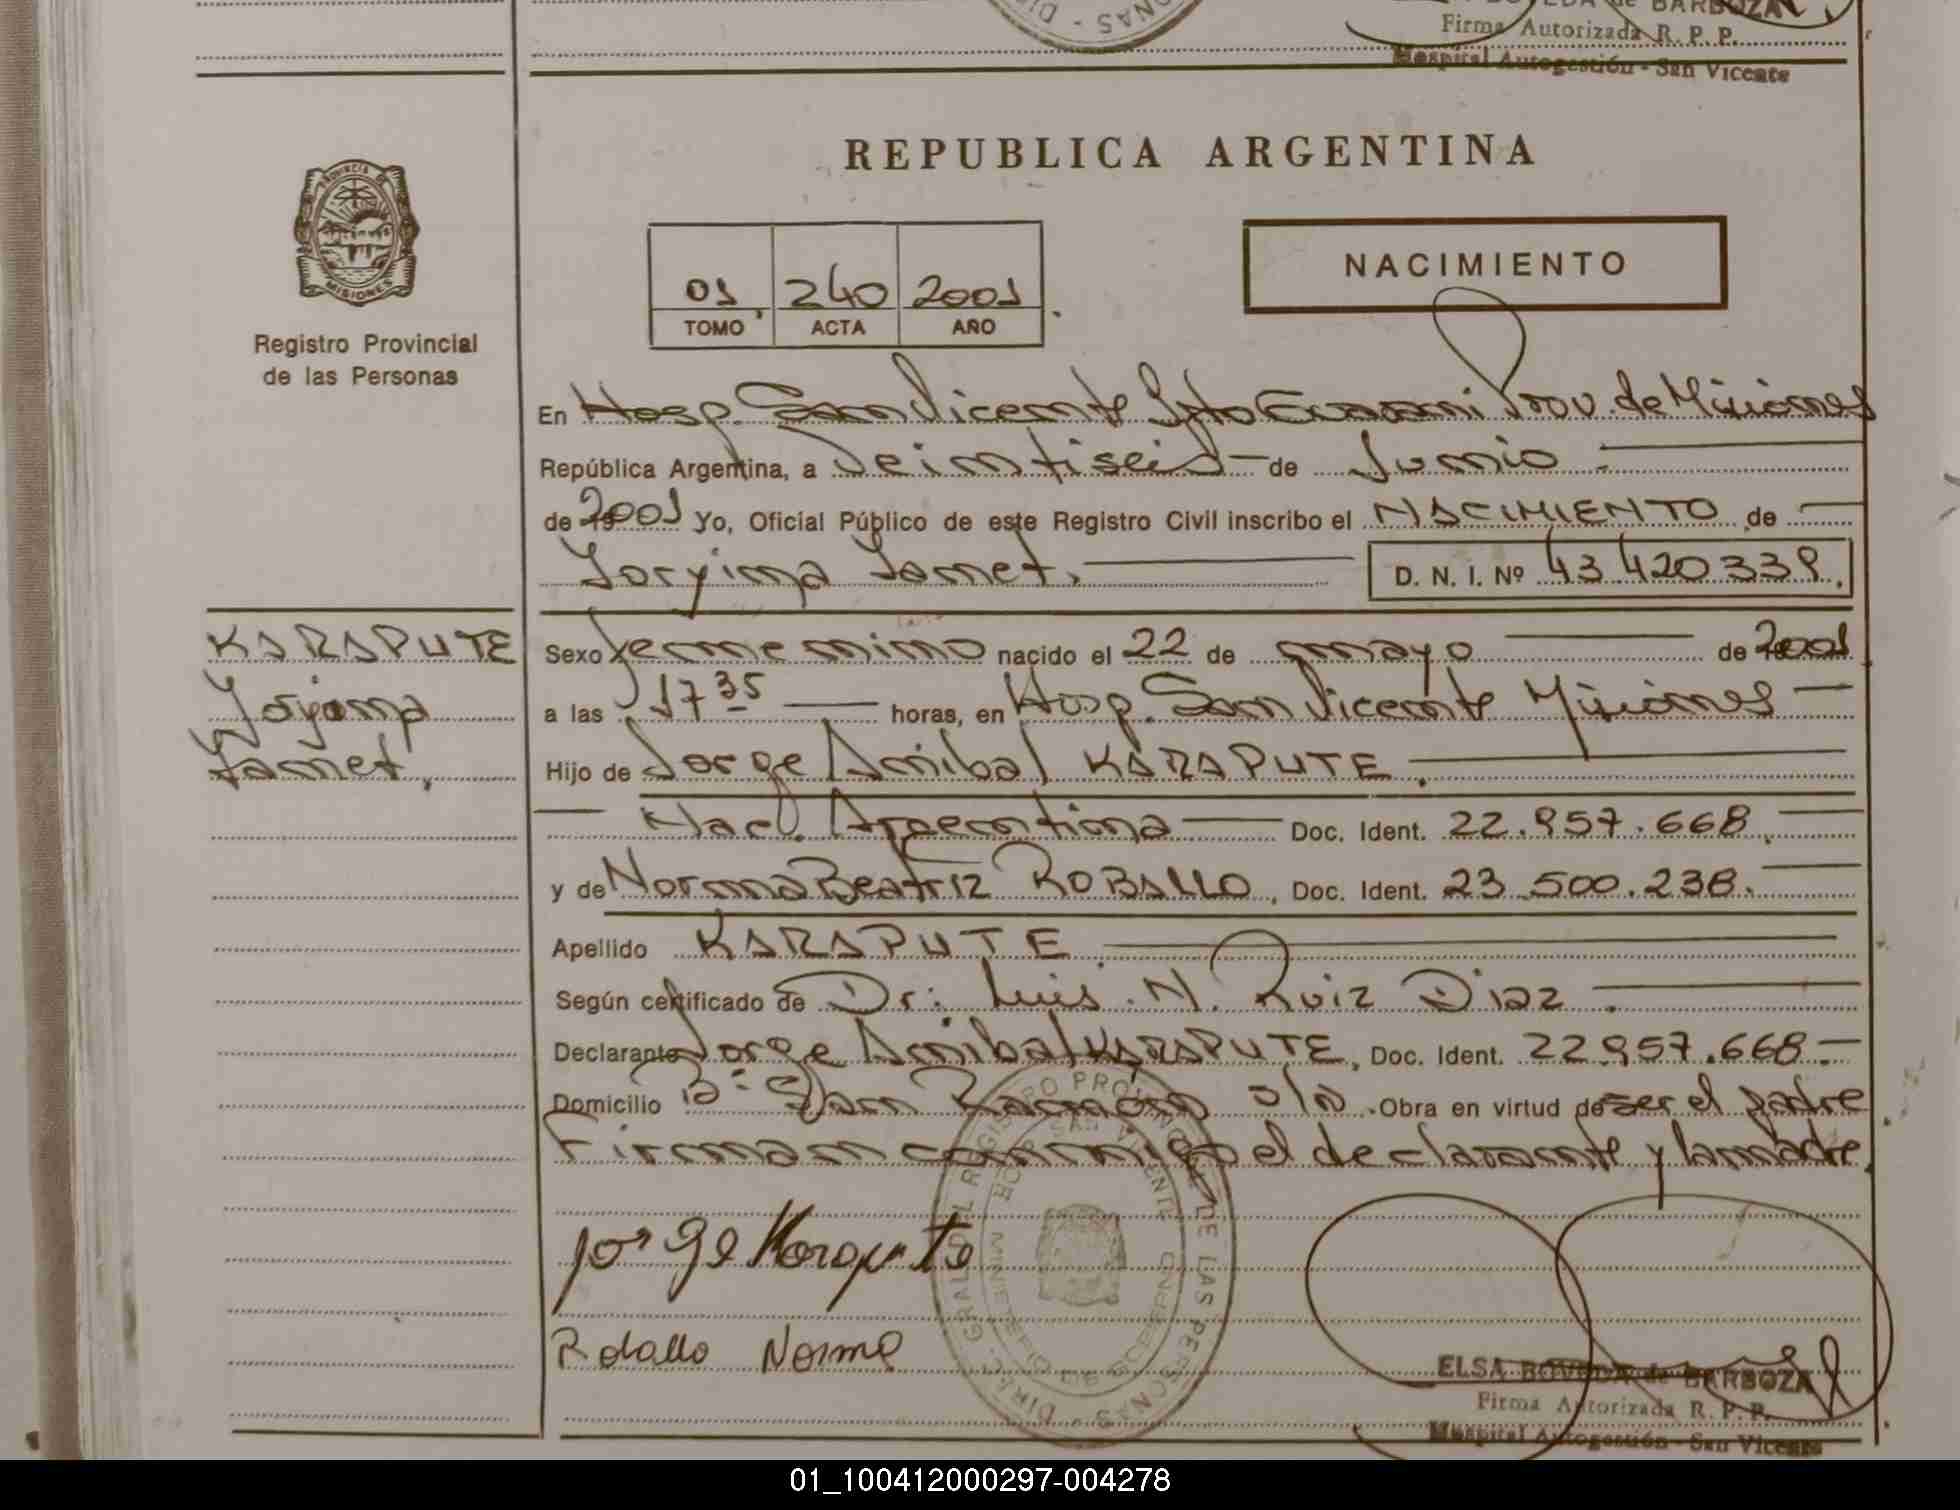 BOVEDA de BARBOZA
Firma Autorizada R. P. P.
Hospital Autogestión - San Vicente
REPUBLICA ARGENTINA
PROVINCIA DE
MISIONES
Registro Provincial
de las Personas
01 240 2001
TOMO ACTA AÑO
NACIMIENTO
En Hosp. San Vicente Dpto Guarani Prov. de Misiones
República Argentina, a Veintiseis de Junio
de 2001 Yo, Oficial Público de este Registro Civil inscribo el NACIMIENTO de
Yoryina Yanet. D. N. I. Nº 43 420 339.
KARAPUTE
Yoryina
Yanet.
Sexo femenino nacido el 22 de mayo de 2001
a las 17 35 horas, en Hosp. San Vicente Misiones
Hijo de Jorge Anibal KARAPUTE.
Nac. Argentina Doc. Ident. 22.957.668.
y de Norma Beatriz ROBALLO, Doc. Ident. 23.500.238.
Apellido KARAPUTE.
Según certificado de Dr: Luis. N. Ruiz Diaz.
Declarante Jorge Anibal KARAPUTE, Doc. Ident. 22957.668.
Domicilio Bº San Ramón s/n. Obra en virtud de ser el padre
Firman conmigo el declarante y la madre.
Jorge Karapute
Roballo Norma
DIREC. GRAL. DEL REGISTRO PROVINCIAL DE LAS PERSONAS
ELSA BOVEDA de BARBOZA
Firma Autorizada R. P. P.
Hospital Autogestión - San Vicente
01_100412000297-004278